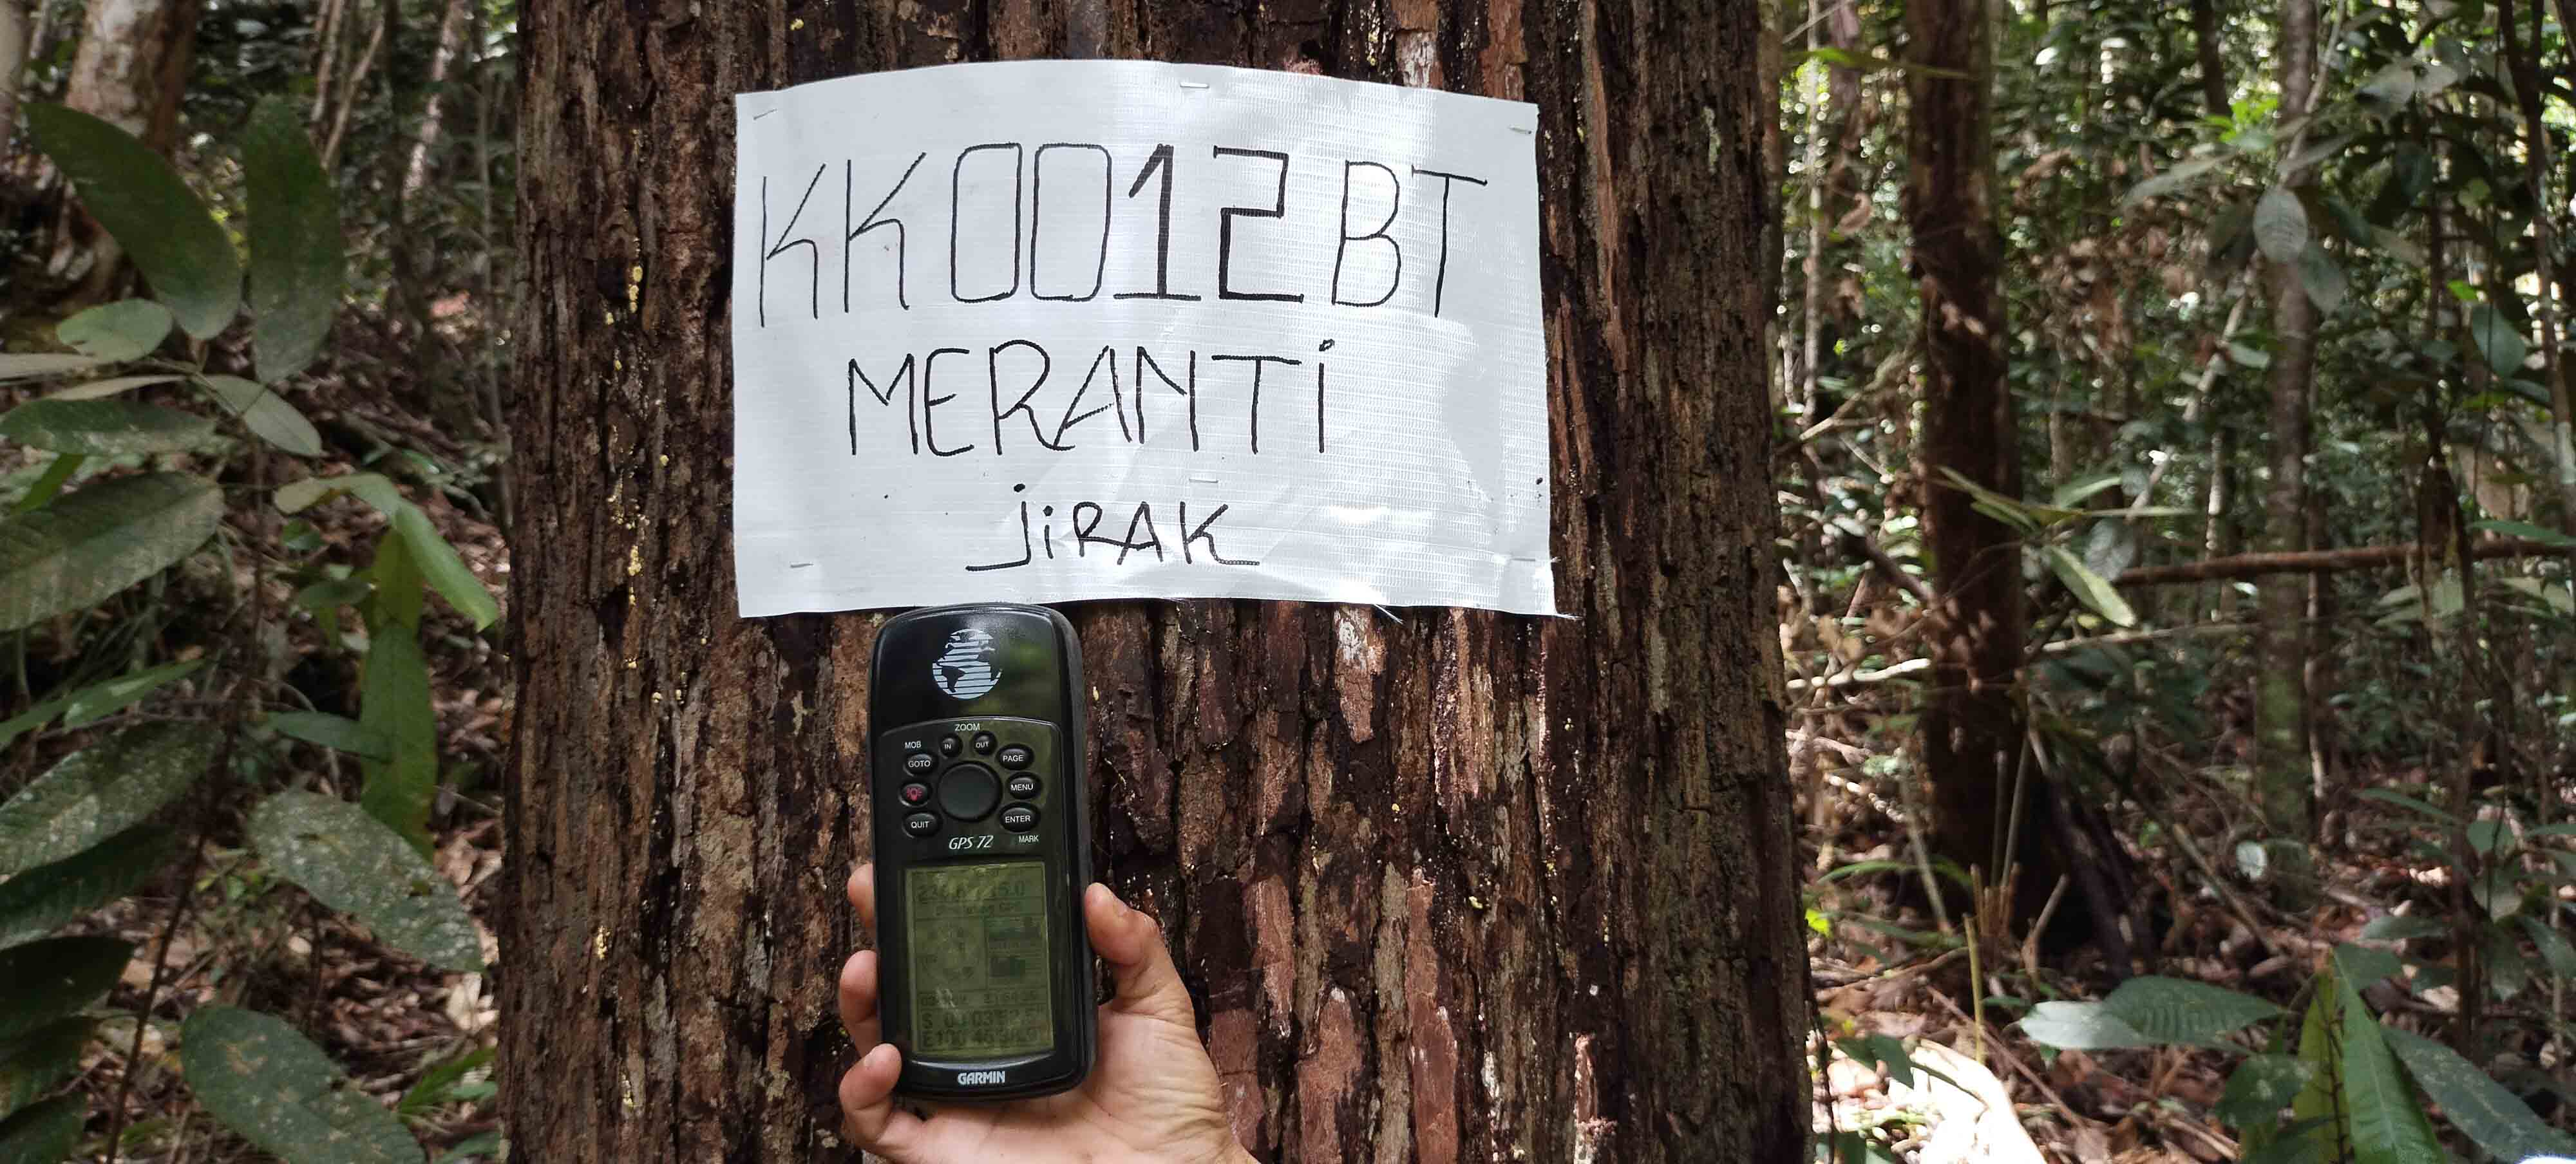 KK0012BT
MERANTi
jiRAK
ZOOM
MOB IN OUT
GOTO PAGE
MENU
QUIT ENTER
GPS 72 MARK
GARMIN